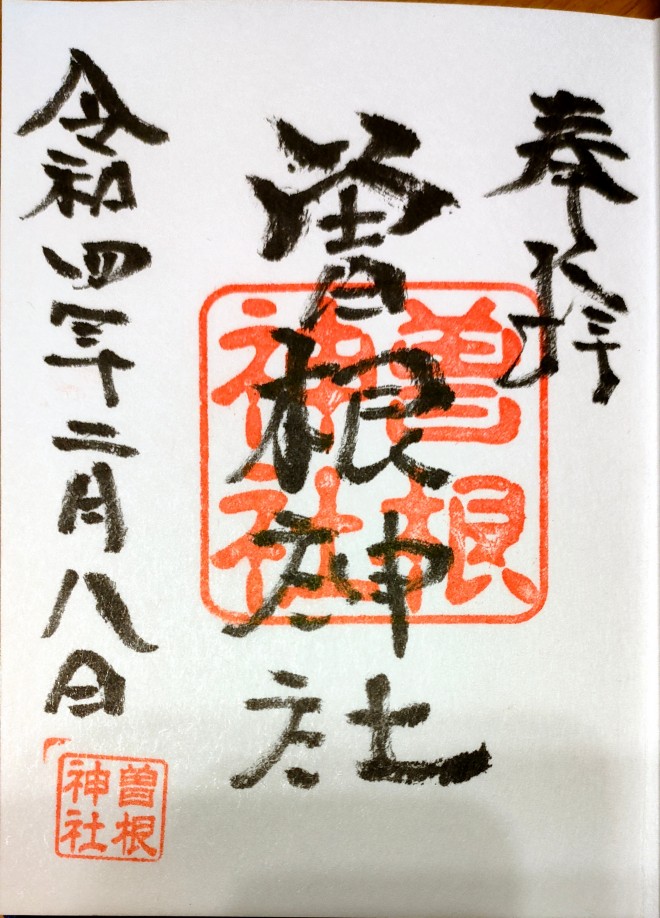 奉拝
曽根神社
曽根
神社
令和四年二月八日
曽根
神社